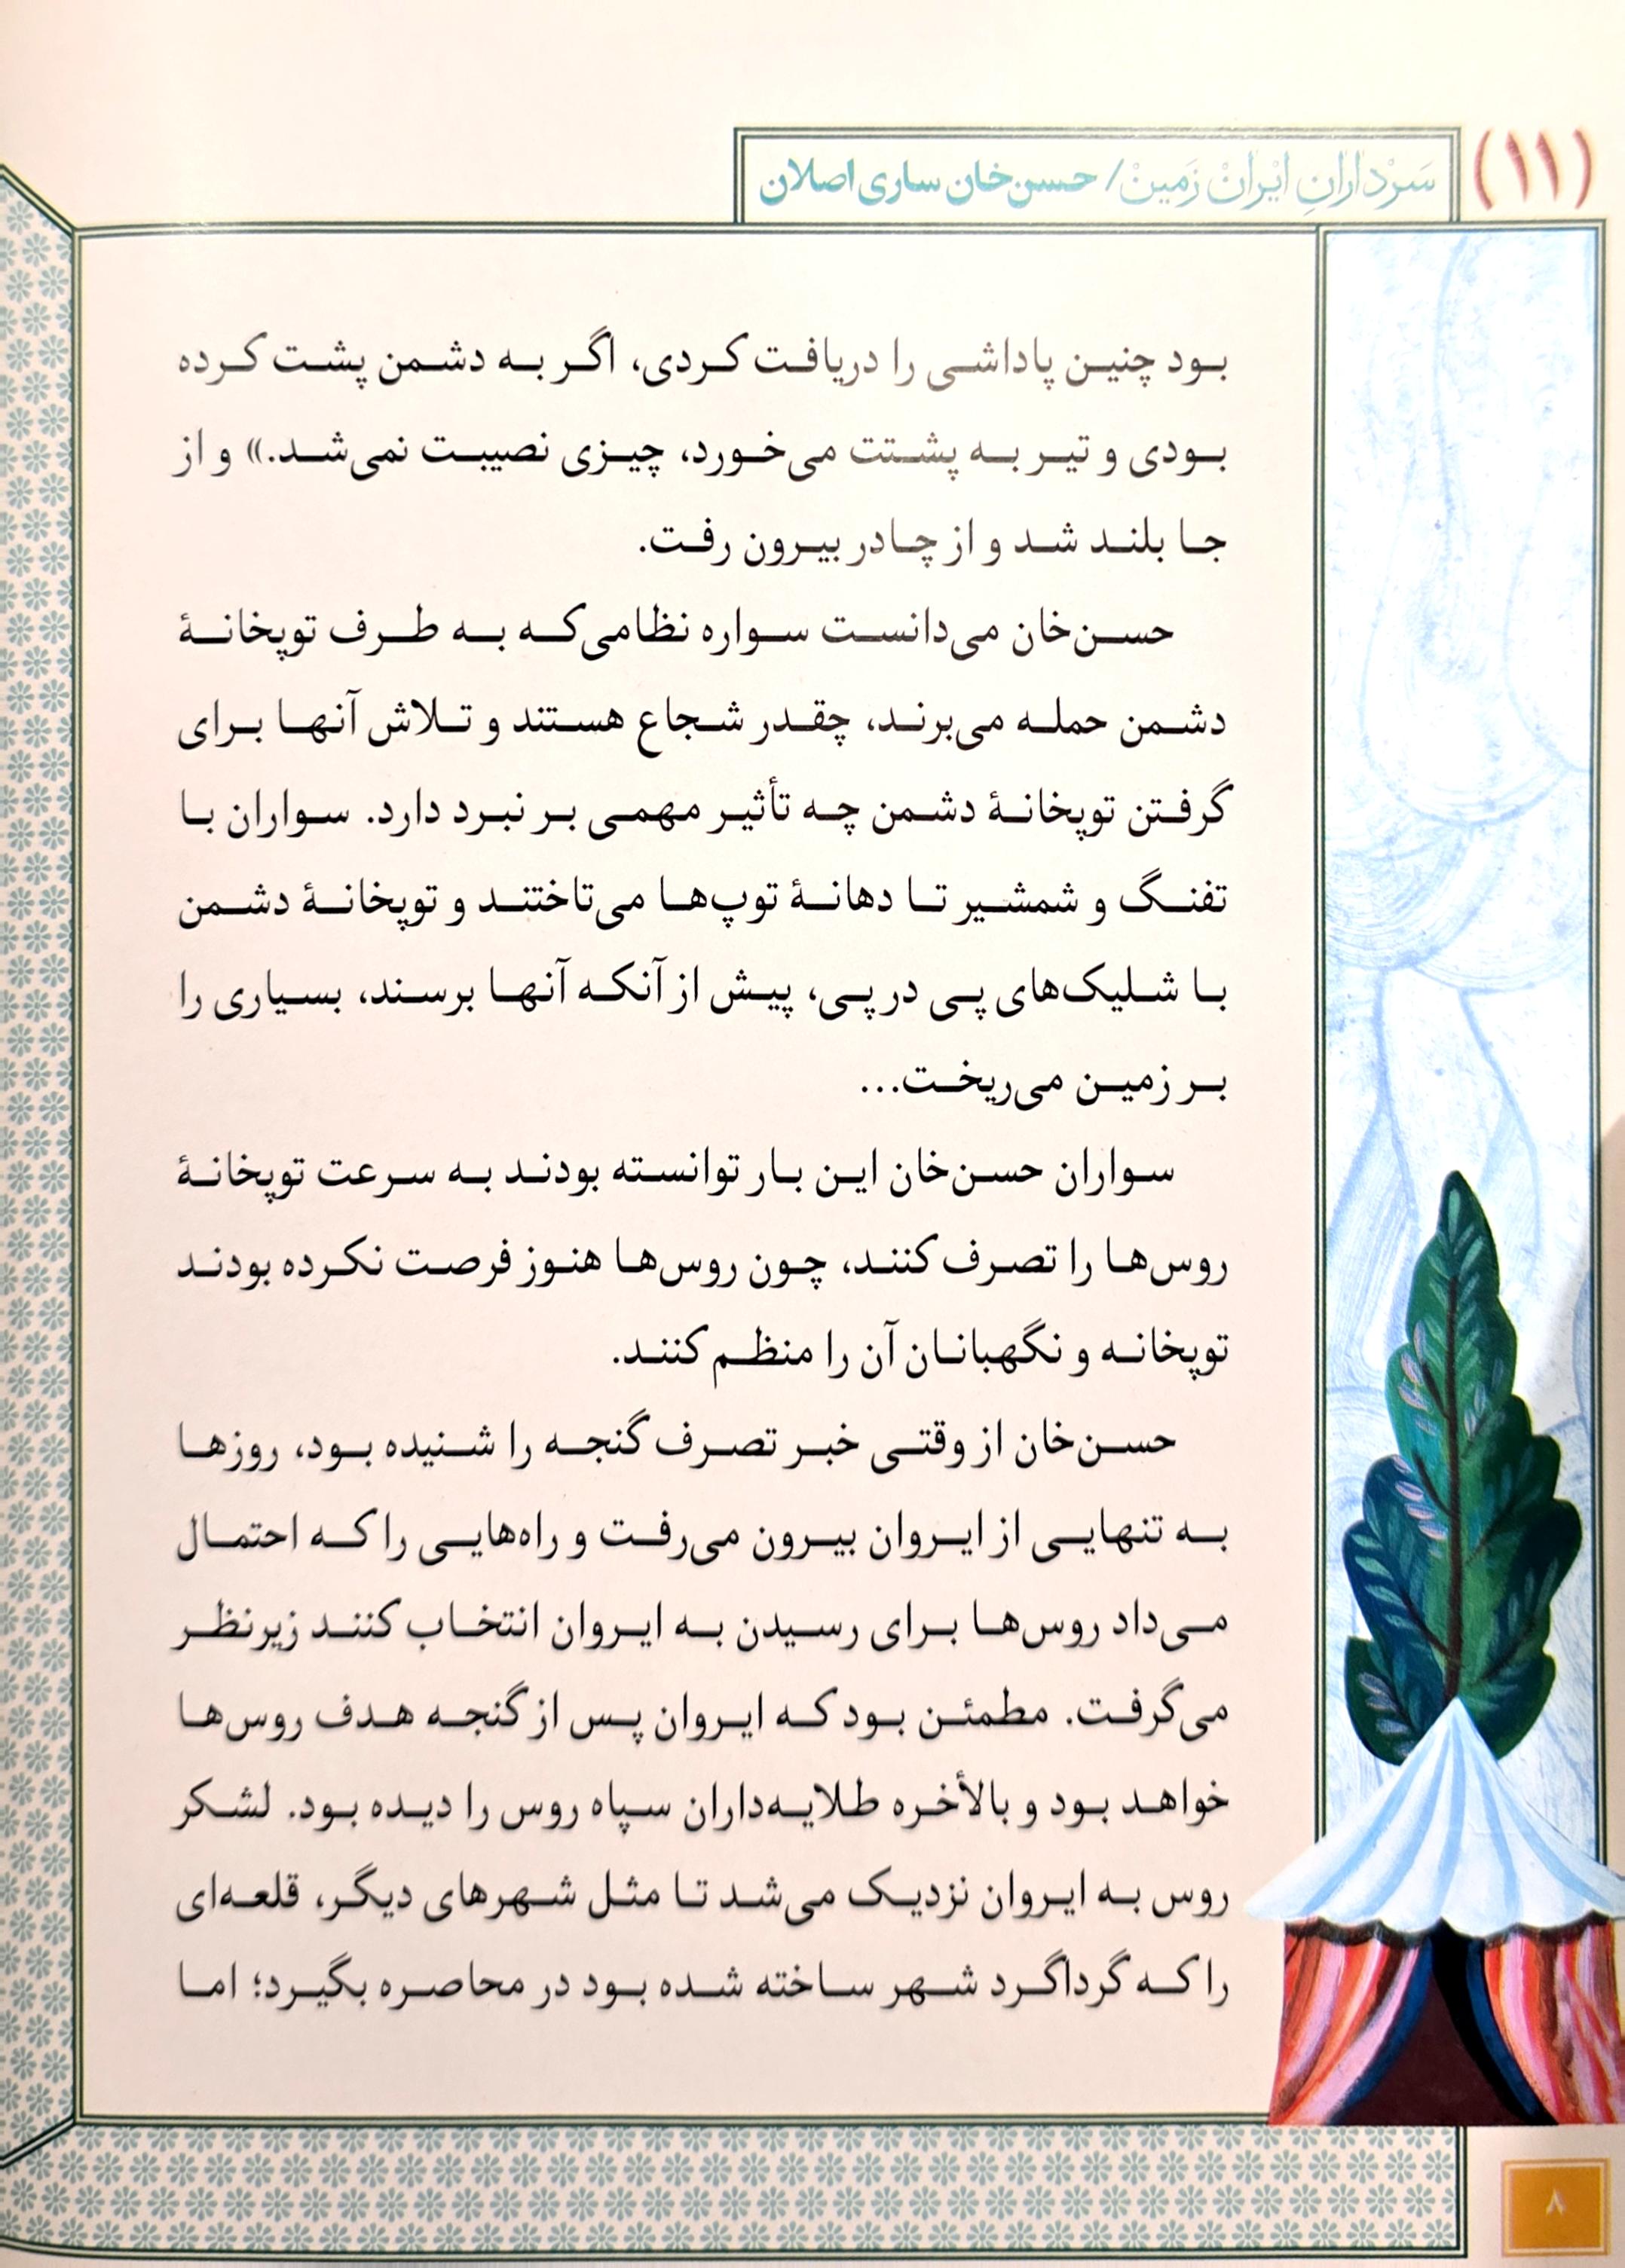 (۱۱) سَرْدارانِ ایْرانْ زَمینْ/ حسن‌خان ساری اصلان
بود چنین پاداشی را دریافت کردی، اگر به دشمن پشت کرده
بودی و تیر به پشتت می‌خورد، چیزی نصیبت نمی‌شد.» و از
جا بلند شد و از چادر بیرون رفت.
حسن‌خان می‌دانست سواره نظامی‌که به طرف توپخانهٔ
دشمن حمله می‌برند، چقدر شجاع هستند و تلاش آنها برای
گرفتن توپخانهٔ دشمن چه تأثیر مهمی بر نبرد دارد. سواران با
تفنگ و شمشیر تا دهانهٔ توپ‌ها می‌تاختند و توپخانهٔ دشمن
با شلیک‌های پی در پی، پیش از آنکه آنها برسند، بسیاری را
بر زمین می‌ریخت...
سواران حسن‌خان این بار توانسته بودند به سرعت توپخانهٔ
روس‌ها را تصرف کنند، چون روس‌ها هنوز فرصت نکرده بودند
توپخانه و نگهبانان آن را منظم کنند.
حسن‌خان از وقتی خبر تصرف گنجه را شنیده بود، روزها
به تنهایی از ایروان بیرون می‌رفت و راه‌هایی را که احتمال
می‌داد روس‌ها برای رسیدن به ایروان انتخاب کنند زیرنظر
می‌گرفت. مطمئن بود که ایروان پس از گنجه هدف روس‌ها
خواهد بود و بالأخره طلایه‌داران سپاه روس را دیده بود. لشکر
روس به ایروان نزدیک می‌شد تا مثل شهرهای دیگر، قلعه‌ای
را که گرداگرد شهر ساخته شده بود در محاصره بگیرد؛ اما
۸